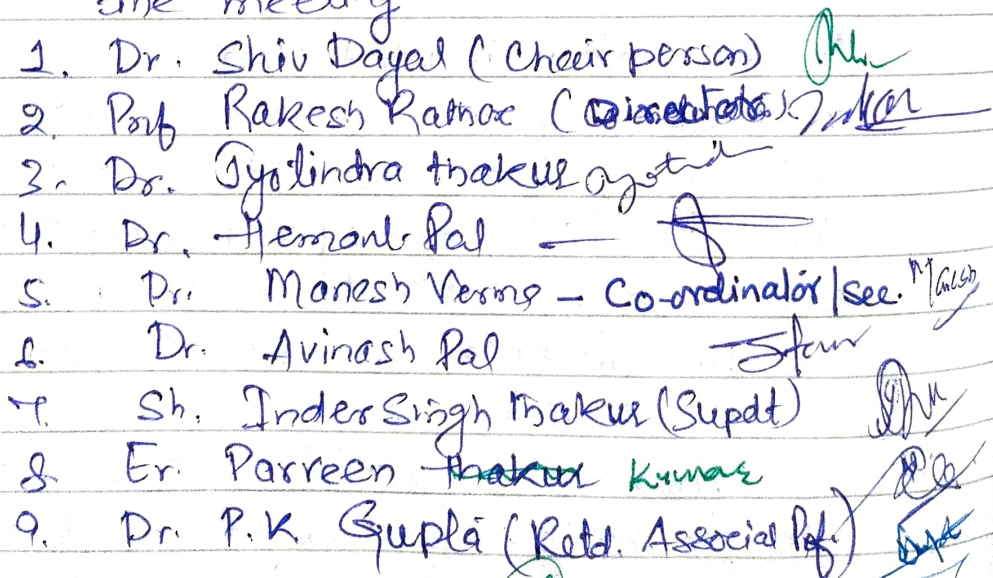 the meeting
1. Dr. Shiv Dayal (Chair person)
2. Prof Rakesh Rathor
3. Dr. Jyotindra thakur
4. Dr. Hemant Pal —
5. Dr. Manesh Verma – Co-ordinator/sec.
6. Dr. Avinash Pal
7. Sh. Inder Singh Thakur (Supdt)
8. Er. Parveen Kumar
9. Dr. P.K Gupta (Retd. Associal Prof.)